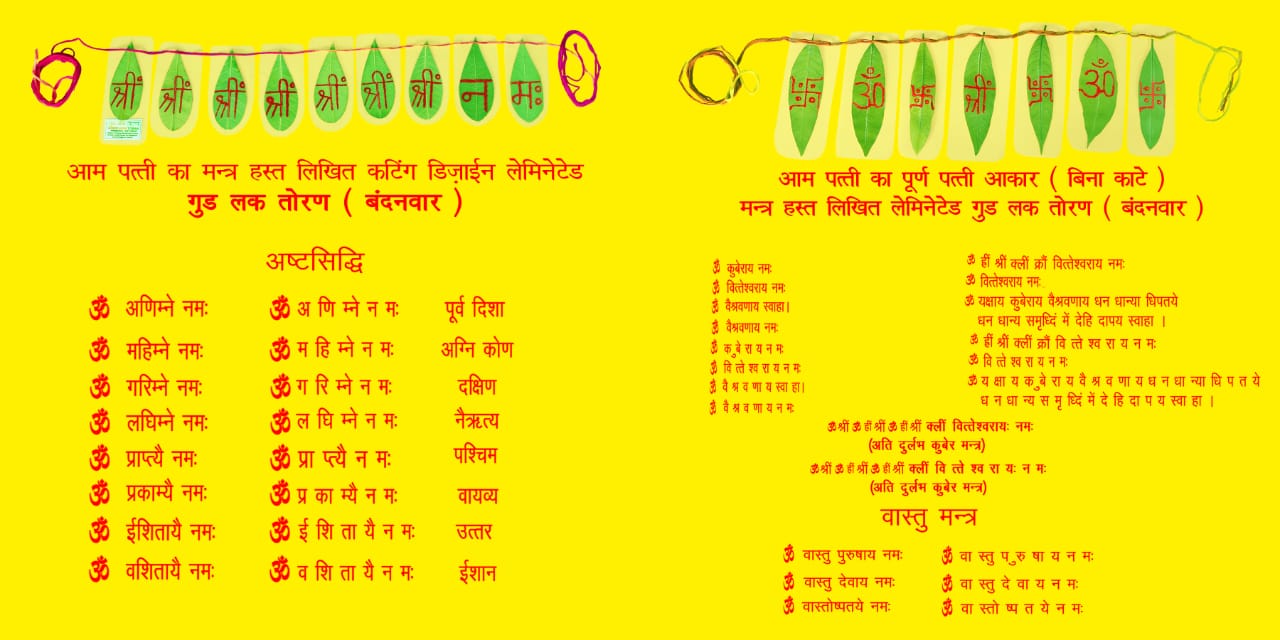 श्रीं श्रीं श्रीं श्रीं श्रीं श्रीं श्रीं न मः
आम पत्ती का मन्त्र हस्त लिखित कटिंग डिज़ाईन लेमिनेटेड
गुड लक तोरण ( बंदनवार )
अष्टसिद्धि
ॐ अणिम्ने नमः ॐ अ णि म्ने न मः पूर्व दिशा
ॐ महिम्ने नमः ॐ म हि म्ने न मः अग्नि कोण
ॐ गरिम्ने नमः ॐ ग रि म्ने न मः दक्षिण
ॐ लघिम्ने नमः ॐ ल घि म्ने न मः नैऋत्य
ॐ प्राप्त्यै नमः ॐ प्रा प्त्यै न मः पश्चिम
ॐ प्रकाम्यै नमः ॐ प्र का म्यै न मः वायव्य
ॐ ईशितायै नमः ॐ ई शि ता यै न मः उत्तर
ॐ वशितायै नमः ॐ व शि ता यै न मः ईशान
卐 ॐ 卐 श्रीं 卐 ॐ 卐
आम पत्ती का पूर्ण पत्ती आकार ( बिना काटे )
मन्त्र हस्त लिखित लेमिनेटेड गुड लक तोरण ( बंदनवार )
ॐ कुबेराय नमः
ॐ वित्तेश्वराय नमः
ॐ वैश्रवणाय स्वाहा।
ॐ वैश्रवणाय नमः
ॐ क ुबे रा य न मः
ॐ वि त्ते श्व रा य न मः
ॐ वै श्र व णा य स्वा हा।
ॐ वै श्र व णा य न मः
ॐ ह्रीं श्रीं क्लीं क्रौं वित्तेश्वराय नमः
ॐ वित्तेश्वराय नमः
ॐ यक्षाय कुबेराय वैश्रवणाय धन धान्या धिपतये
धन धान्य समृध्दिं में देहि दापय स्वाहा ।
ॐ ह्रीं श्रीं क्लीं क्रौं वि त्ते श्व रा य न मः
ॐ वि त्ते श्व रा य न मः
ॐ य क्षा य क ुबे रा य वै श्र व णा य ध न धा न्या धि प त ये
ध न धा न्य स मृ ध्दिं में दे हि दा प य स्वा हा ।
ॐ श्रीं ॐ ह्रीं श्रीं ॐ ह्रीं श्रीं क्लीं वित्तेश्वरायः नमः
(अति दुर्लभ कुबेर मन्त्र)
ॐ श्रीं ॐ ह्रीं श्रीं ॐ ह्रीं श्रीं क्लीं वि त्ते श्व रा यः न मः
(अति दुर्लभ कुबेर मन्त्र)
वास्तु मन्त्र
ॐ वास्तु पुरुषाय नमः ॐ वा स्तु प ुरु षा य न मः
ॐ वास्तु देवाय नमः ॐ वा स्तु दे वा य न मः
ॐ वास्तोष्पतये नमः ॐ वा स्तो ष्प त ये न मः